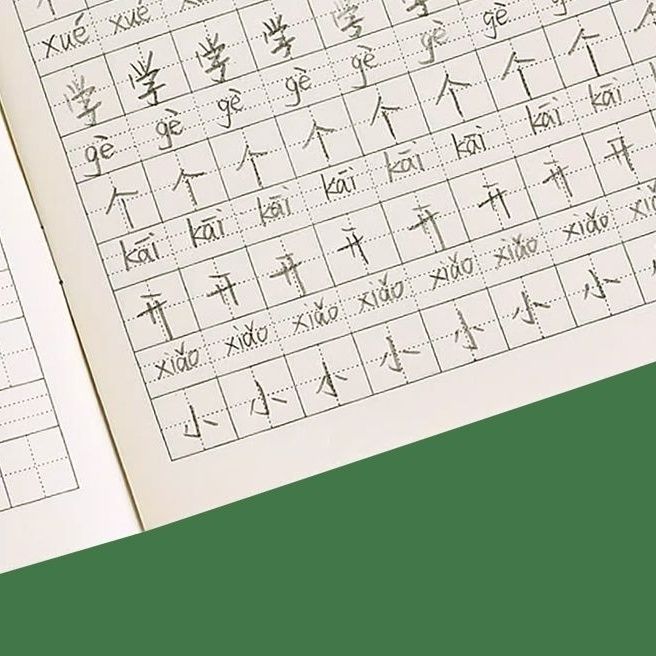 xué xué
学 学 学 学 学
gè gè gè gè gè gè gè
个 个 个 个 个 个 个 个
kāi kāi kāi kāi kāi kāi kāi kāi
开 开 开 开 开 开 开 开
xiǎo xiǎo xiǎo xiǎo xiǎo xiǎo xiǎo
小 小 小 小 小 小 小